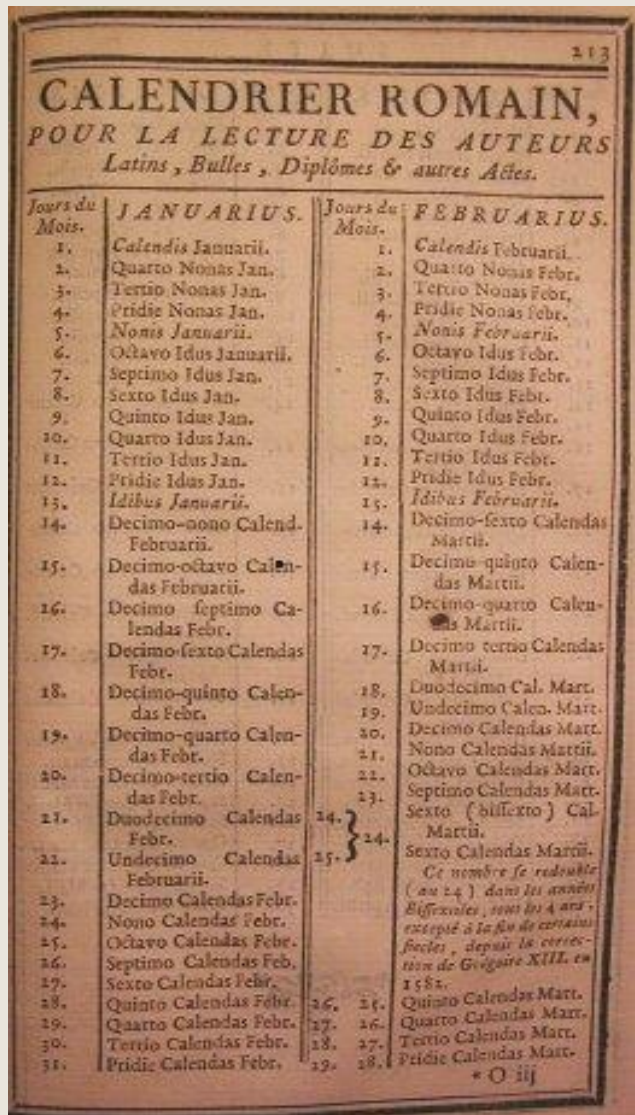 213
CALENDRIER ROMAIN,
POUR LA LECTURE DES AUTEURS
Latins, Bulles, Diplômes & autres Actes.
Jours du
Mois.
JANUARIUS.
1. Calendis Januarii.
2. Quarto Nonas Jan.
3. Tertio Nonas Jan.
4. Pridie Nonas Jan.
5. Nonis Januarii.
6. Octavo Idus Januarii.
7. Septimo Idus Jan.
8. Sexto Idus Jan.
9. Quinto Idus Jan.
10. Quarto Idus Jan.
11. Tertio Idus Jan.
12. Pridie Idus Jan.
13. Idibus Januarii.
14. Decimo-nono Calend.
Februarii.
15. Decimo-octavo Calen-
das Februarii.
16. Decimo septimo Ca-
lendas Febr.
17. Decimo-sexto Calendas
Febr.
18. Decimo-quinto Calen-
das Febr.
19. Decimo-quarto Calen-
das Febr.
20. Decimo-tertio Calen-
das Febr.
21. Duodecimo Calendas
Febr.
22. Undecimo Calendas
Februarii.
23. Decimo Calendas Febr.
24. Nono Calendas Febr.
25. Octavo Calendas Febr.
26. Septimo Calendas Feb.
27. Sexto Calendas Febr.
28. Quinto Calendas Febr.
29. Quarto Calendas Febr.
30. Tertio Calendas Febr.
31. Pridie Calendas Febr.
Jours du
Mois.
FEBRUARIUS.
1. Calendis Februarii.
2. Quarto Nonas Febr.
3. Tertio Nonas Febr.
4. Pridie Nonas Febr.
5. Nonis Februarii.
6. Octavo Idus Febr.
7. Septimo Idus Febr.
8. Sexto Idus Febr.
9. Quinto Idus Febr.
10. Quarto Idus Febr.
11. Tertio Idus Febr.
12. Pridie Idus Febr.
13. Idibus Februarii.
14. Decimo-sexto Calendas
Martii.
15. Decimo-quinto Calen-
das Martii.
16. Decimo-quarto Calen-
das Martii.
17. Decimo tertio Calendas
Martii.
18. Duodecimo Cal. Mart.
19. Undecimo Calen. Mart.
20. Decimo Calendas Mart.
21. Nono Calendas Martii.
22. Octavo Calendas Mart.
23. Septimo Calendas Mart.
24. Sexto (bissexto) Cal.
24. Martii.
25. Sexto Calendas Martii.
Ce nombre se redouble
(au 24) dans les années
Bissextiles, tous les 4 ans,
excepté à la fin de certains
siecles, depuis la correc-
tion de Grégoire XIII. en
1582.
26. 25. Quinto Calendas Mart.
27. 26. Quarto Calendas Mart.
28. 27. Tertio Calendas Mart.
29. 28. Pridie Calendas Mart.
* O iij